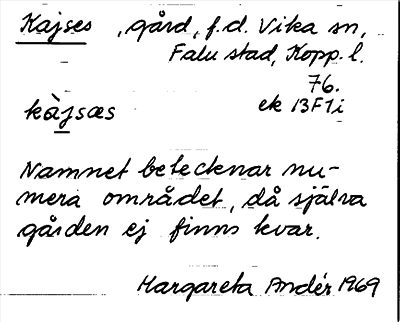 Kajses, gård, f.d. Vika sn,
Falu stad, Kopp. l.
76.
ek 13F1i
kàjsæs
Namnet betecknar nu-
mera området, då själva
gården ej finns kvar.
Margareta Andér 1969